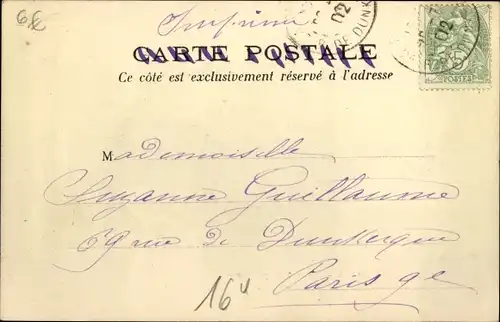 6€
Imprimé
02
DE DUNK
02
CARTE POSTALE
POSTES
Ce côté est exclusivement réservé à l'adresse
Mademoiselle
Suzanne Guillaume
69 rue de Dunkerque
Paris 9e
16u